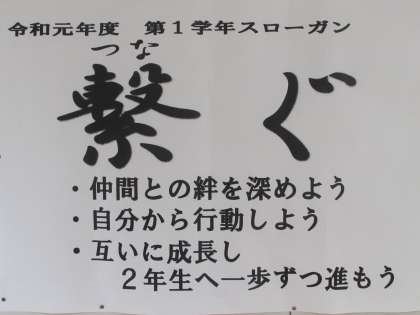 令和元年度　第１学年スローガン
つな
繋ぐ
・仲間との絆を深めよう
・自分から行動しよう
・互いに成長し
２年生へ一歩ずつ進もう